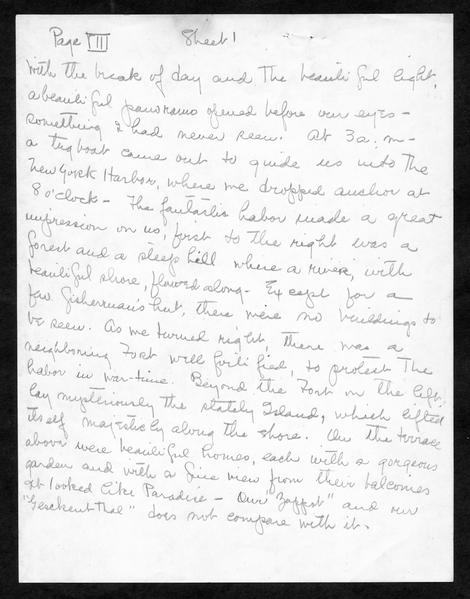 Page III Sheet 1
With the break of day and the beautiful light,
a beautiful panorama opened before our eyes -
something I had never seen. At 3 a.m. -
a tugboat came out to guide us into the
New York Harbor, where we dropped anchor at
8 o'clock - The fantastic habor made a great
impression on us, first to the right was a
forest and a steep hill where a river, with
beautiful shore, flowed along - Except for a
few fisherman's hut, there were no buildings to
be seen. As we turned right, there was a
neighboring Fort well fortified, to protest the
habor in war-time. Beyond the Fort on the left,
lay mysteriously the stately Island, which lifted
itself majesticly along the shore. On the terrace
above were beautiful homes, each with a gorgeous
garden and with a fine view from their balconies
It looked like Paradise - Our and our
does not compare with it.